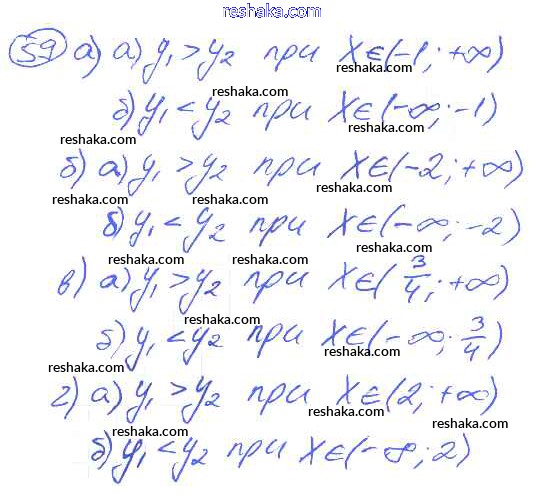 reshaka.com
59 а) а) y₁ > y₂ при X∈(-1; +∞)
reshaka.com reshaka.com
б) y₁ < y₂ при X∈(-∞; -1)
reshaka.com reshaka.com
б) а) y₁ > y₂ при X∈(-2; +∞)
reshaka.com reshaka.com reshaka.com
б) y₁ < y₂ при X∈(-∞; -2)
reshaka.com reshaka.com
в) а) y₁ > y₂ при X∈(3/4; +∞)
reshaka.com reshaka.com
б) y₁ < y₂ при X∈(-∞; 3/4)
reshaka.com reshaka.com
г) а) y₁ > y₂ при X∈(2; +∞)
reshaka.com reshaka.com reshaka.com
б) y₁ < y₂ при X∈(-∞; 2)